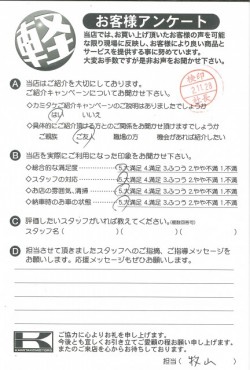 軽
お客様アンケート
当店では、お買い上げ頂いたお客様の声を可能
な限り現場に反映し、お客様により良い商品と
サービスを提供する事に努めています。
大変お手数ですが是非お声をお聞かせ下さい。
A 当店はご紹介を大切にしております。
ご紹介キャンペーンについてお聞かせ下さい。
◇カミタケご紹介キャンペーンのご説明はありましたでしょうか
はい いいえ
◇具体的にご紹介頂ける方とのご関係をお聞かせ頂けますでしょうか
ご親族 ご友人 職場の方 機会があれば紹介したい
B 当店を実際にご利用になった印象をお聞かせ下さい。
◇総合的な満足度 5.大満足 4.満足 3.ふつう 2.やや不満 1.不満
◇スタッフの対応 5.大満足 4.満足 3.ふつう 2.やや不満 1.不満
◇お店の雰囲気、清掃 5.大満足 4.満足 3.ふつう 2.やや不満 1.不満
◇納車時のお車の状態 5.大満足 4.満足 3.ふつう 2.やや不満 1.不満
C 評価したいスタッフがいれば教えてください。(複数回答可)
スタッフ名( )( )( )
D 担当させて頂きましたスタッフへのご指摘、ご指導メッセージを
お願いします。応援メッセージもぜひお願いします。
K
ご協力に心よりお礼を申し上げます。
今後とも宜しくお引き立てご愛顧の程お願い申し上げます。
またのご来店を心からお待ちしております。
担当( 牧山 )